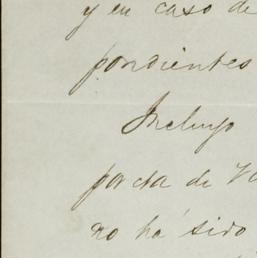 y en caso de
pondientes
Incluyo
por cta de
no ha sido